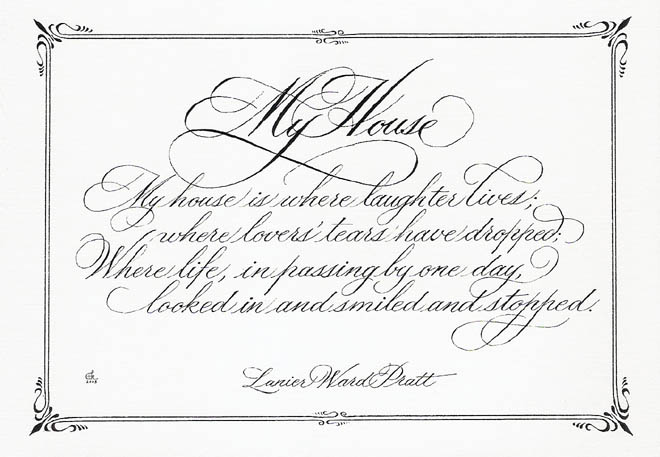 My House
My house is where laughter lives;
where lovers' tears have dropped;
Where life, in passing by one day,
looked in and smiled and stopped.
Lanier Ward Pratt